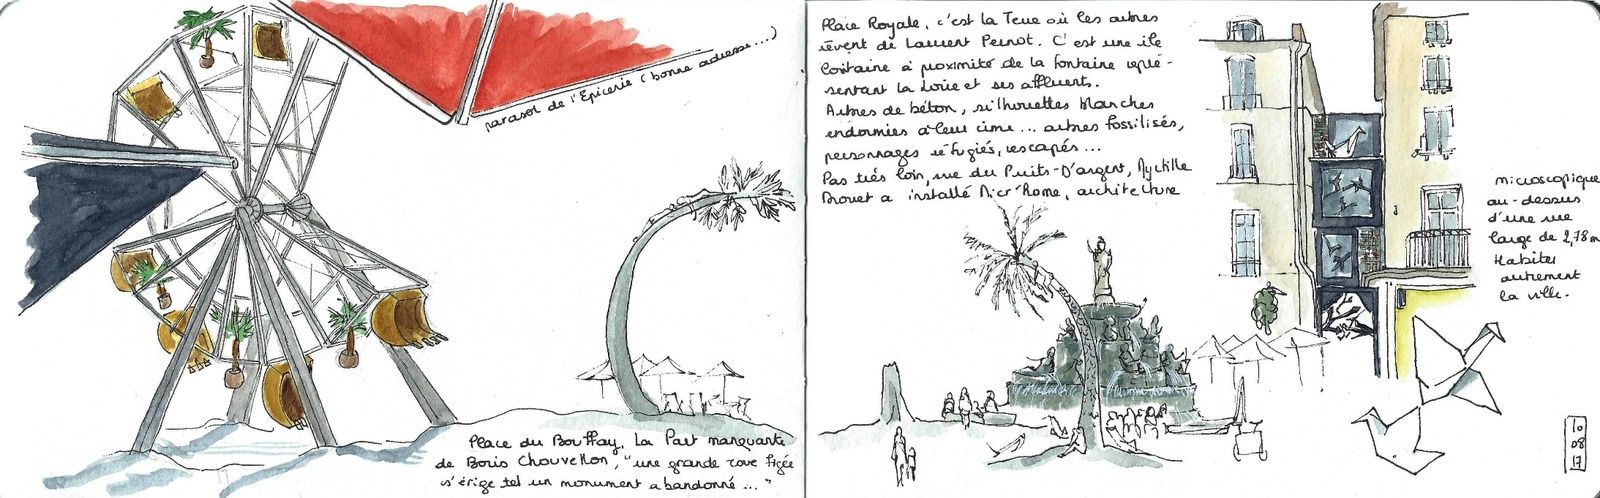 parasol de l'Epicerie (bonne adresse...)
Place du Bouffay. La Part manquante
de Boris Chouvellon, "une grande roue figée
s'érige tel un monument abandonné..."
Place Royale, c'est la Terre où les arbres
rêvent de Laurent Pernot. C'est une île
lointaine à proximité de la fontaine repré-
sentant la Loire et ses affluents.
Arbres de béton, silhouettes blanches
endormies à leur cime... arbres fossilisés,
personnages réfugiés, rescapés...
Pas très loin, rue du Puits-D'argent, Myrtille
Drouet a installé Micr'Home, architecture
microscopique
au-dessus
d'une rue
large de 2,78m
Habiter
autrement
la ville.
10
08
17